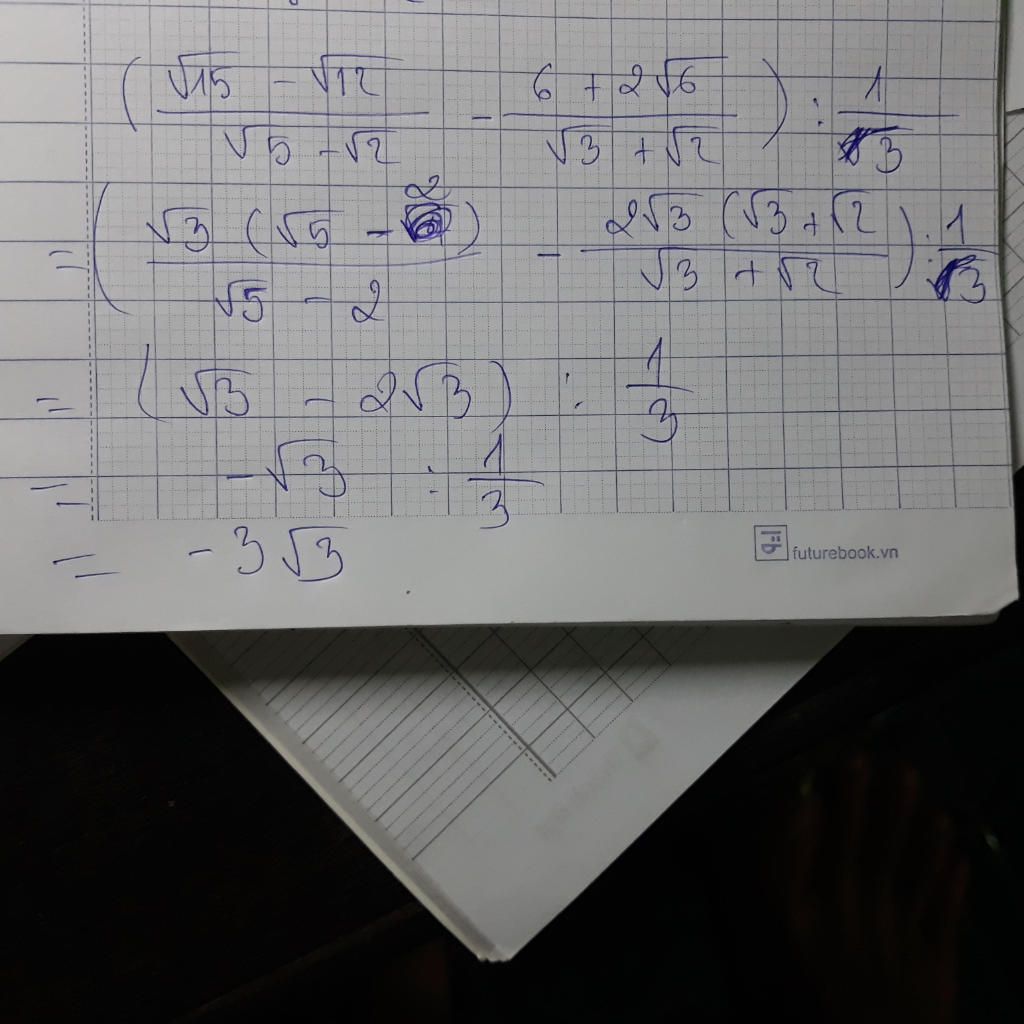 (√15 - √12 / √5 - √2 - 6 + 2√6 / √3 + √2) : 1/3
= (√3 (√5 - 2) / √5 - 2 - 2√3 (√3 + √2 / √3 + √2) : 1/3
= (√3 - 2√3) : 1/3
= -√3 : 1/3
= -3√3
futurebook.vn